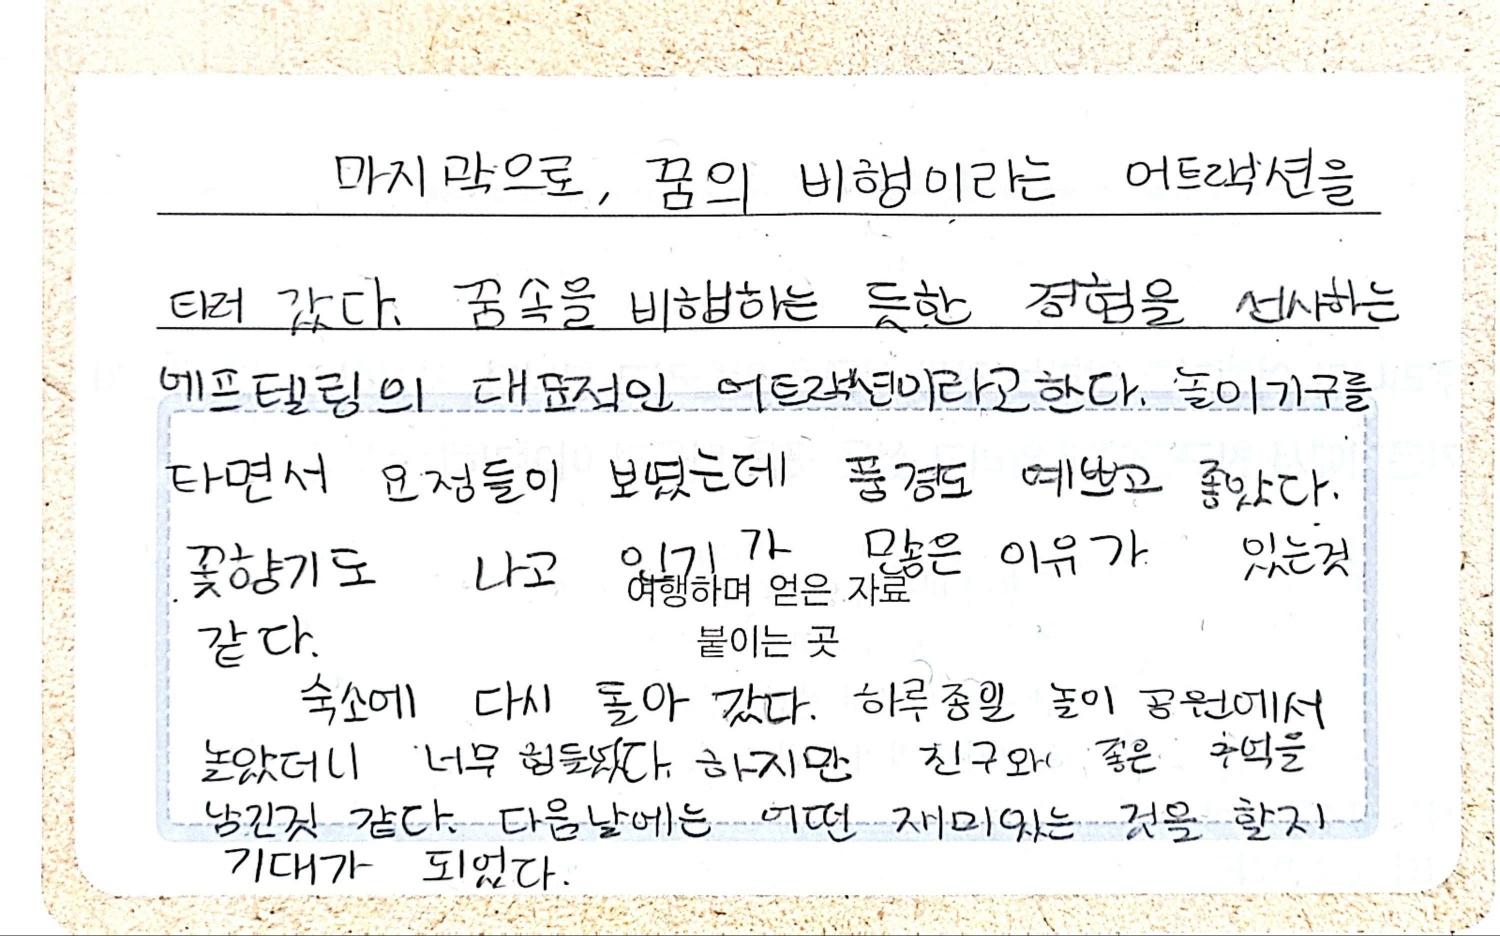 마지막으로, 꿈의 비행이라는 어트랙션을
타러 갔다. 꿈속을 비행하는 듯한 경험을 선사하는
에프텔링의 대표적인 어트랙션이라고한다. 놀이기구를
타면서 요정들이 보였는데 풍경도 예쁘고 좋았다.
꽃향기도 나고 인기가 많은 이유가 있는것
여행하며 얻은 자료
같다.
붙이는 곳
숙소에 다시 돌아 갔다. 하루종일 놀이 공원에서
놀았더니 너무 힘들었다. 하지만 친구와 좋은 추억을
남긴것 같다. 다음날에는 어떤 재미있는 것을 할지
기대가 되었다.